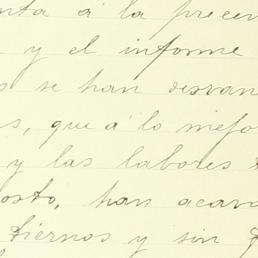 nta á la precen
y el informe
s se han desvan
s, que á lo mejo
y las labores
osto, han acava
tiernos y sin